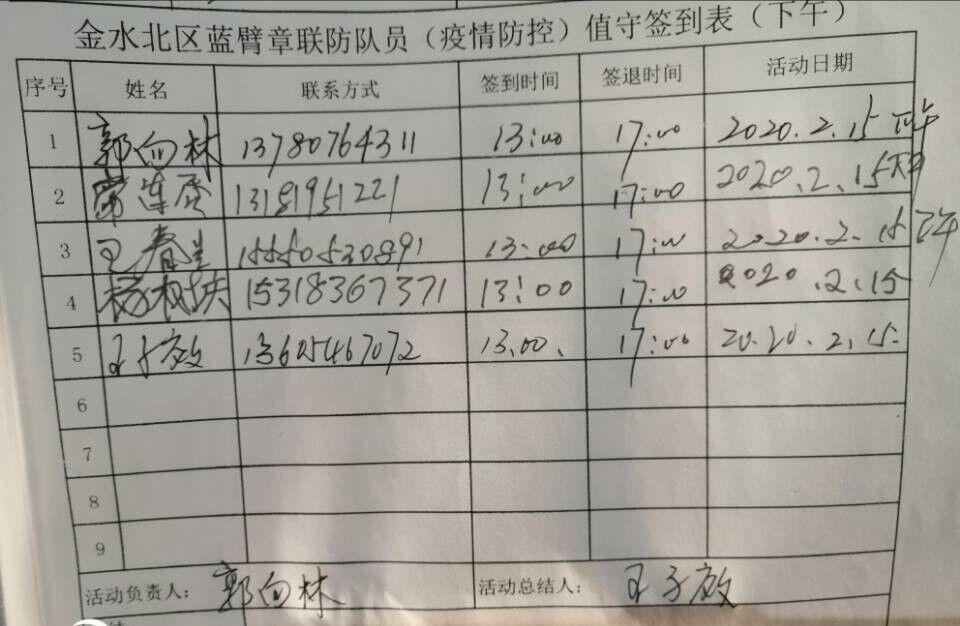 金水北区蓝臂章联防队员（疫情防控）值守签到表（下午）
序号 姓名 联系方式 签到时间 签退时间 活动日期
1 郭向林 13780764311 13:00 17:00 2020.2.15 下午
2 13181951221 13:00 17:00 2020.2.15 下午
3 王春兰 15550530891 13:00 17:00 2020.2.15 下午
4 杨 15318367371 13:00 17:00 2020.2.15
5 王子放 13.00. 17:00 20.20.2.15.
6
7
8
9
活动负责人: 郭向林 活动总结人: 王子放